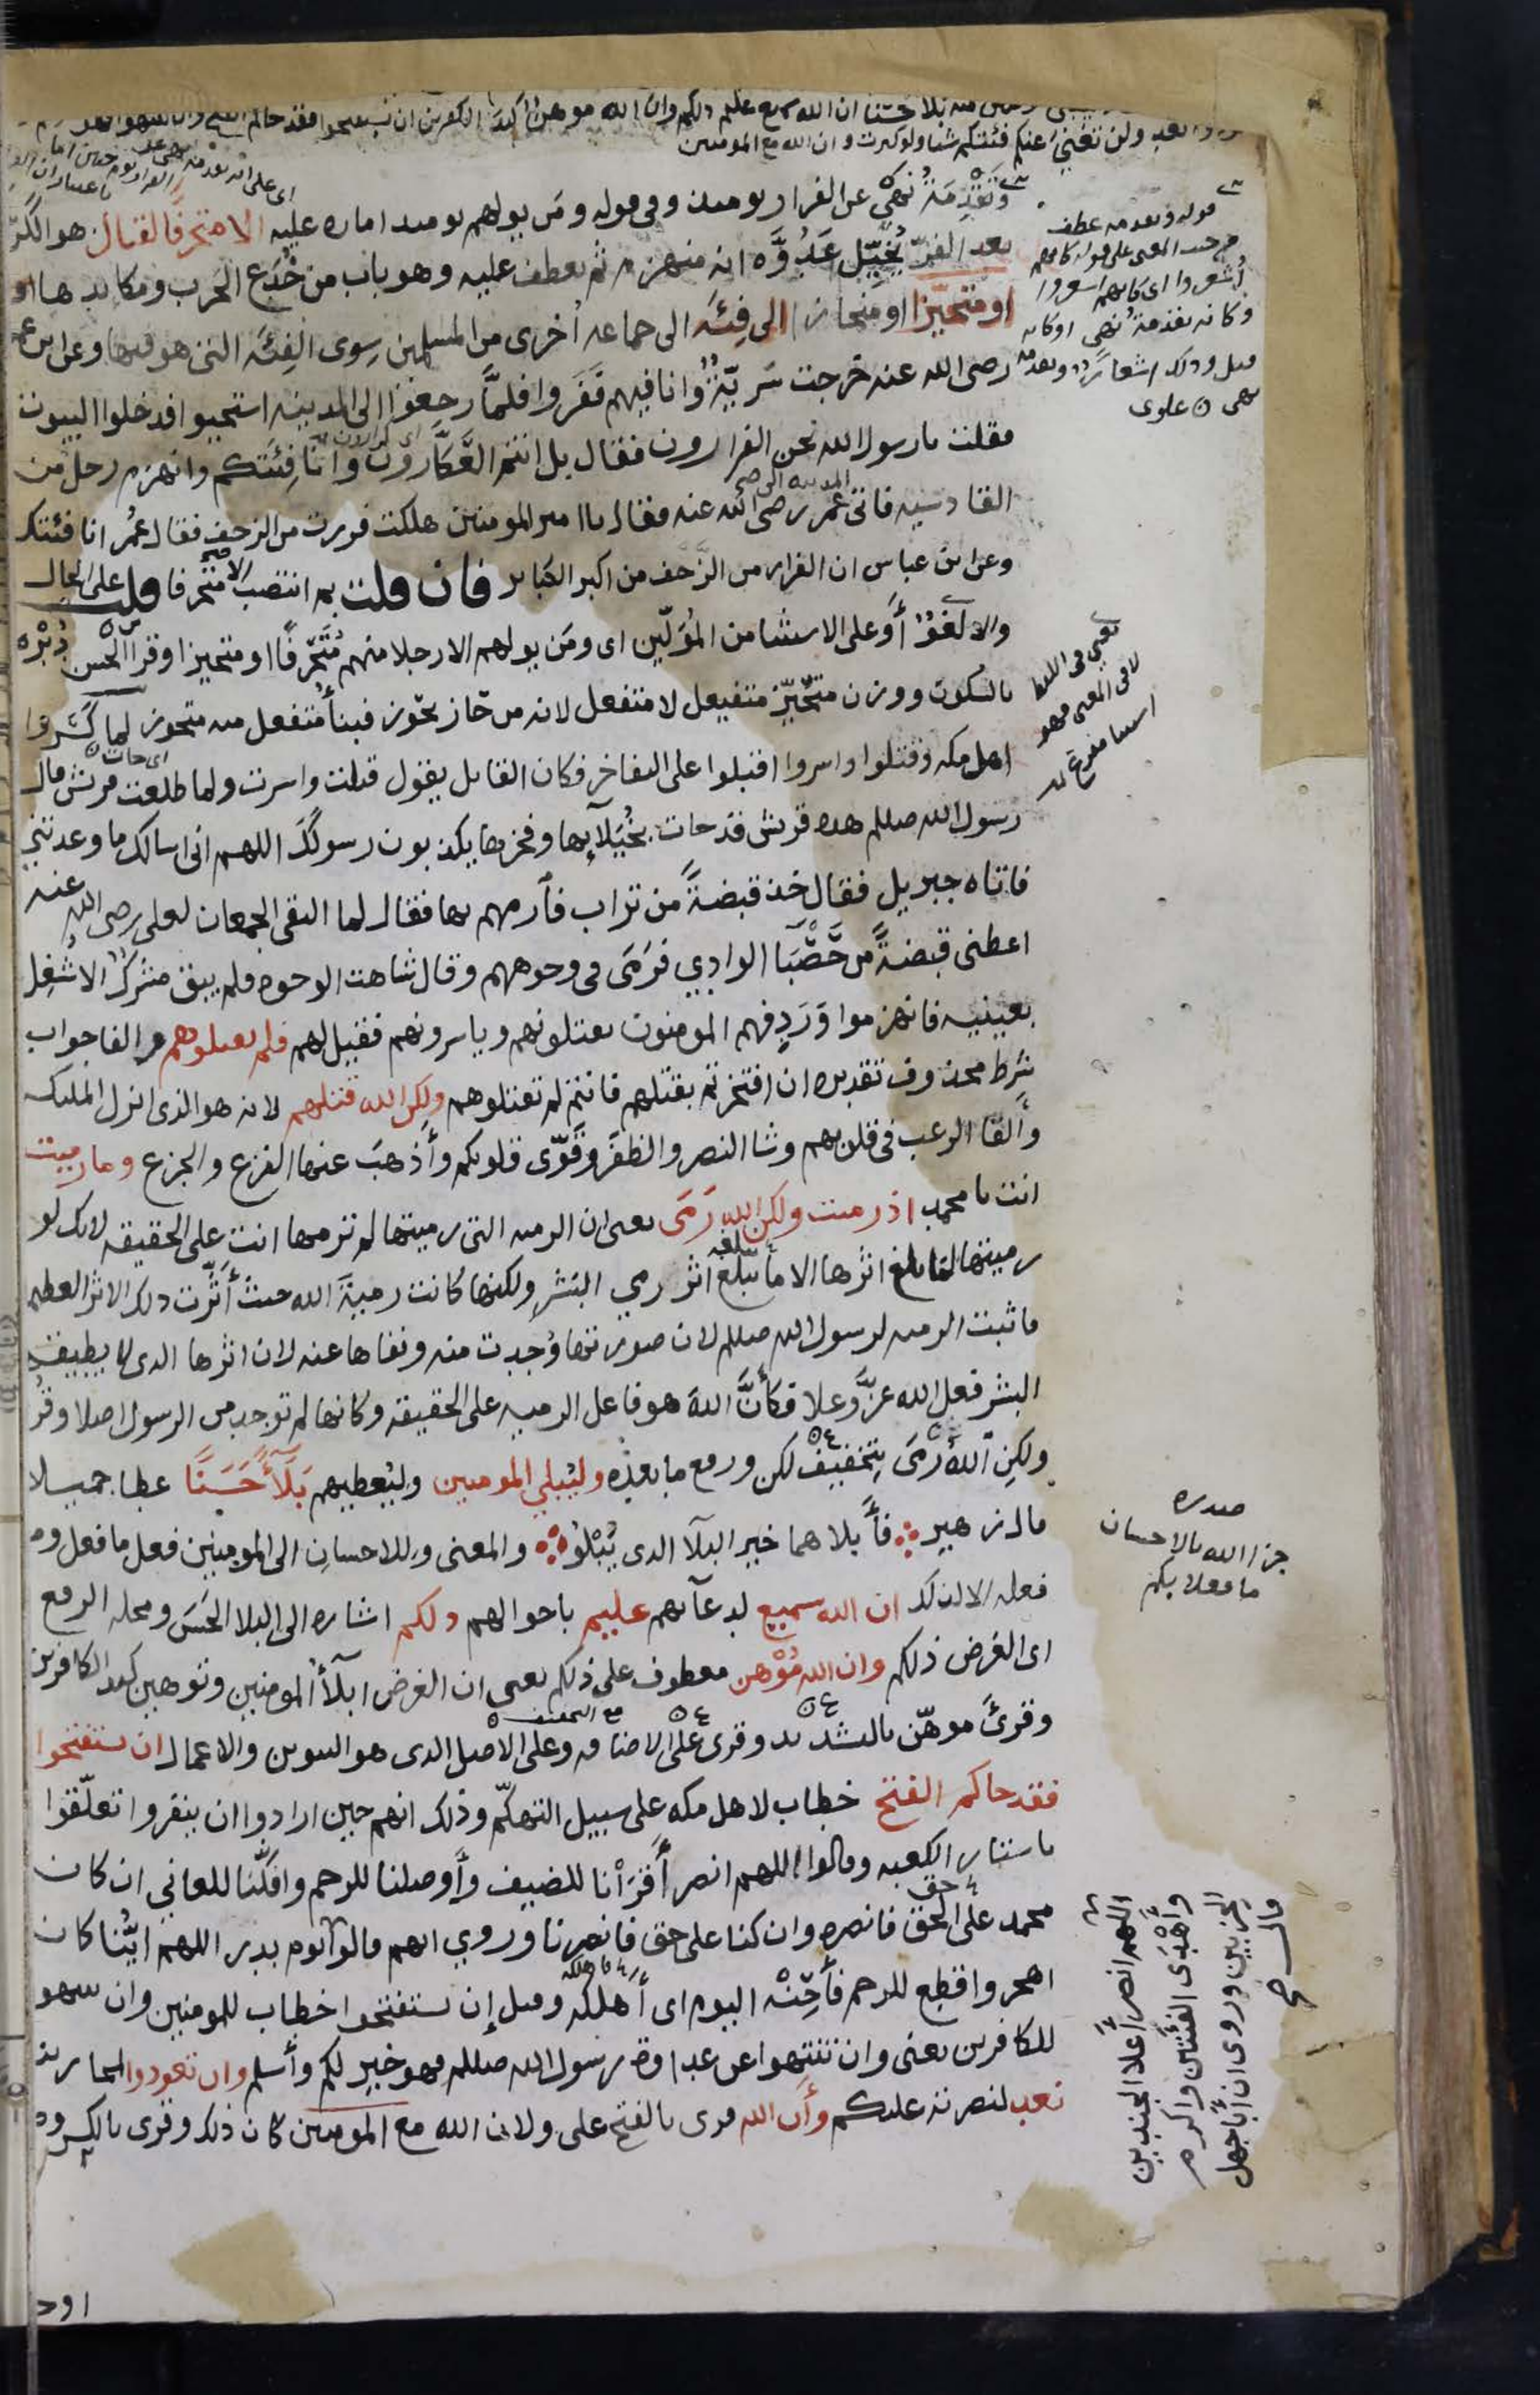 منه بلا حسنا ان الله سميع عليم ذلكم وان الله موهن كيد الكفرين ان تستفتحوا فقد جاكم الفتح وان تنتهوا فهو
نعد ولن تغني عنكم فئتكم شيا ولو كثرت وان الله مع المومنين
وتَقْدِمَةُ نهي عن الفرار يومئذ وفي قوله ومَن يولهم يومئذ اماره عليه الا متحرفا لقتال هو الكَرّ
بعد الفَرّ يُخَيّل عَدُوَّه انه منهزم ثم يعطف عليه وهو باب من خُدَع الحَرب ومكايدها
او متحيّزا او منحازا الى فِئَه الى جماعه اُخرى من المسلمين سِوى الفِئَه التي هو فيها وعن ابن عمر
رضى الله عنه خرجت سَريّةٌ وانا فيهم ففَروا فلمَّا رجعوا الى المدينه استحيوا فدخلوا البيوت
فقلت يا رسول الله نحن الفرارون فقال بل انتم العَكَّارون وانا فِئَتكم وانهزم رجل من
القادسيه فاتى عُمر رضى الله عنه فقال يا امير المومنين هلكت فررت من الزحف فقال عمُر انا فئتك
وعن ابن عباس ان الفرار من الزَّحف من اكبر الكبائر فان قلت بم انتصب الا متحرفا قلت على الحال
والا لَغْوٌ أوَ على الاستثنا من المُوَلّين اى ومَن يولهم الا رجلا منهم مُتَحَرّفًا او متحيزا وقرا الحسن دُبْرَه
بالسكون ووزن متحَيّز متفيعل لا متفعل لانه من حَاز يحُوز فبناءُ مُتَفعل منه متحوز لما كَسَروا
اهل مكه وقتلوا واسروا اقبلوا على التفاخر فكان القائل يقول قتلت واسرت ولما طلعت قريش قال
رسول الله صللم هذه قريش قد جات بخُيَلآيها وفخرها يكذبون رسولَكَ اللهم انى اسالك ما وعدتني
فاتاه جبريل فقال خذ قبضةً من تراب فأرمهم بها فقال لما التقى الجمعان لعلى رضى الله عنه
اعطنى قبضةً من حَصْبَآ الوادِي فرَمَى فى وجوههم وقال شاهت الوجوه فلم يبق مشركٌ الا شُغِل
بعينيه فانهزموا ورَدِفهم المومنون يقتلونهم وياسرونهم فقيل لهم فلم تقتلوهم والفا جواب
شَرط محذوف تقديره ان افتخرتم بقتلهم فانتم لم تقتلوهم ولكن الله قتلهم لانه هو الذى انزل الملئكه
وألقا الرعب فى قلوبهم وشا النصر والظفَر وقَوّى قلوبكم وأذهبَ عنها الفزع والجزع وما رميت
انت يا محمد اذ رميت ولكن الله رَمَى يعنى ان الرميه التى رميتها لم ترمها انتَ على الحقيقه لانك لو
رميتها لما بلغ اثرها الا ما يبلغ اثر رمي البَشرِ ولكنها كانت رميةَ الله حيث أثَّرت ذلك الاثر العظيم
فاثبت الرميه لرسول الله صللم لان صورتها وُجدت منه ونفاها عنه لان اثرها الذى لا يطيقه
البشر فعل الله عزَّ وعلا فكأنَّ اللهَ هو فاعل الرميه على الحقيقه وكانها لم توجد من الرسول اصلا وقُرئ
ولكنِ اللهُ رمَى بتخفيف لكن ورفع ما بعده وليُبلي المومنين وليُعطيهم بَلآءً حَسَنًا عطا جميلا
قال زهير فأَبلاهما خير البلآ الذى يَبْلُو والمعنى وللاحسانِ الى المومنين فعل ما فعل وما
فعله الا لذلك ان الله سميع لدعآئهم عليم باحوالهم ذلكم اشاره الى البلا الحَسَن ومحله الرفع
اى الغرض ذلكم وان الله مُوْهن معطوف على ذلكم يعنى ان الغرض ابلآءُ المومنين وتوهين كيد الكافرين
وقرئَ موهّن بالتشديد وقرى على الاضافه وعلى الاصل الذى هو التنوين والاعمال ان تستفتحوا
فقد جاكم الفتح خطاب لاهل مكه على سبيل التهكّم وذلك انهم حين ارادوا ان ينفروا تعلّقوا
باستار الكعبه وقالوا اللهم انصر أقرَانا للضيف وأوصلنا للرحم وافكّنا للعاني ان كان
محمد على الحق فانصره وان كنا على حق فانصرنا وروي انهم قالوا يوم بدر اللهم ايُّنا كان
اهجر واقطع للرحم فأَحِنْه اليوم اى أهلكه وقيل إن تستفتحوا خطاب للمومنين وان تنتهوا
للكافرين يعنى وان تنتهوا عن عداوة رسول الله صللم فهو خير لكم وأسلم وان تعودوا لمحاربته
نعد لنصرته عليكم وأن الله قرى بالفتح على ولان الله مع المومنين كان ذلك وقرى بالكسر
قوله وتقدمه عطف
من حيث المعنى على قوله كانهم
أُشعروا اى كانهم اشعروا
وكانه تقدمة نهى او كانه
قيل وذلك اشعارٌ وتقدمة
نهى علوى
يعني فى اللفظ
لا فى المعنى فهو
استثنا مفرغ
صدره
جزا الله بالاحسان
ما فعلا بكم
اللهم انصر أعلا الجندين
وأَهْدَى الفئتين واكرم
الحزبين وروى ان أبا جهل
قال